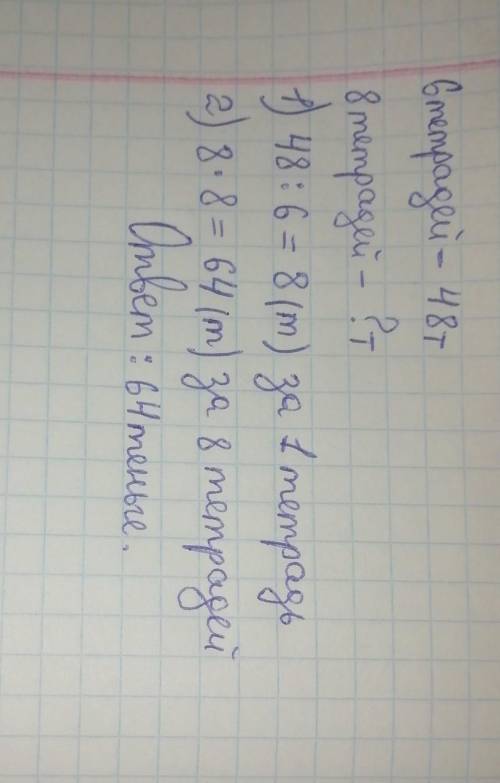 6 тетрадей - 48т
8 тетрадей - ?т
1) 48 : 6 = 8 (т) за 1 тетрадь
2) 8 · 8 = 64 (т) за 8 тетрадей
Ответ : 64 теньге.